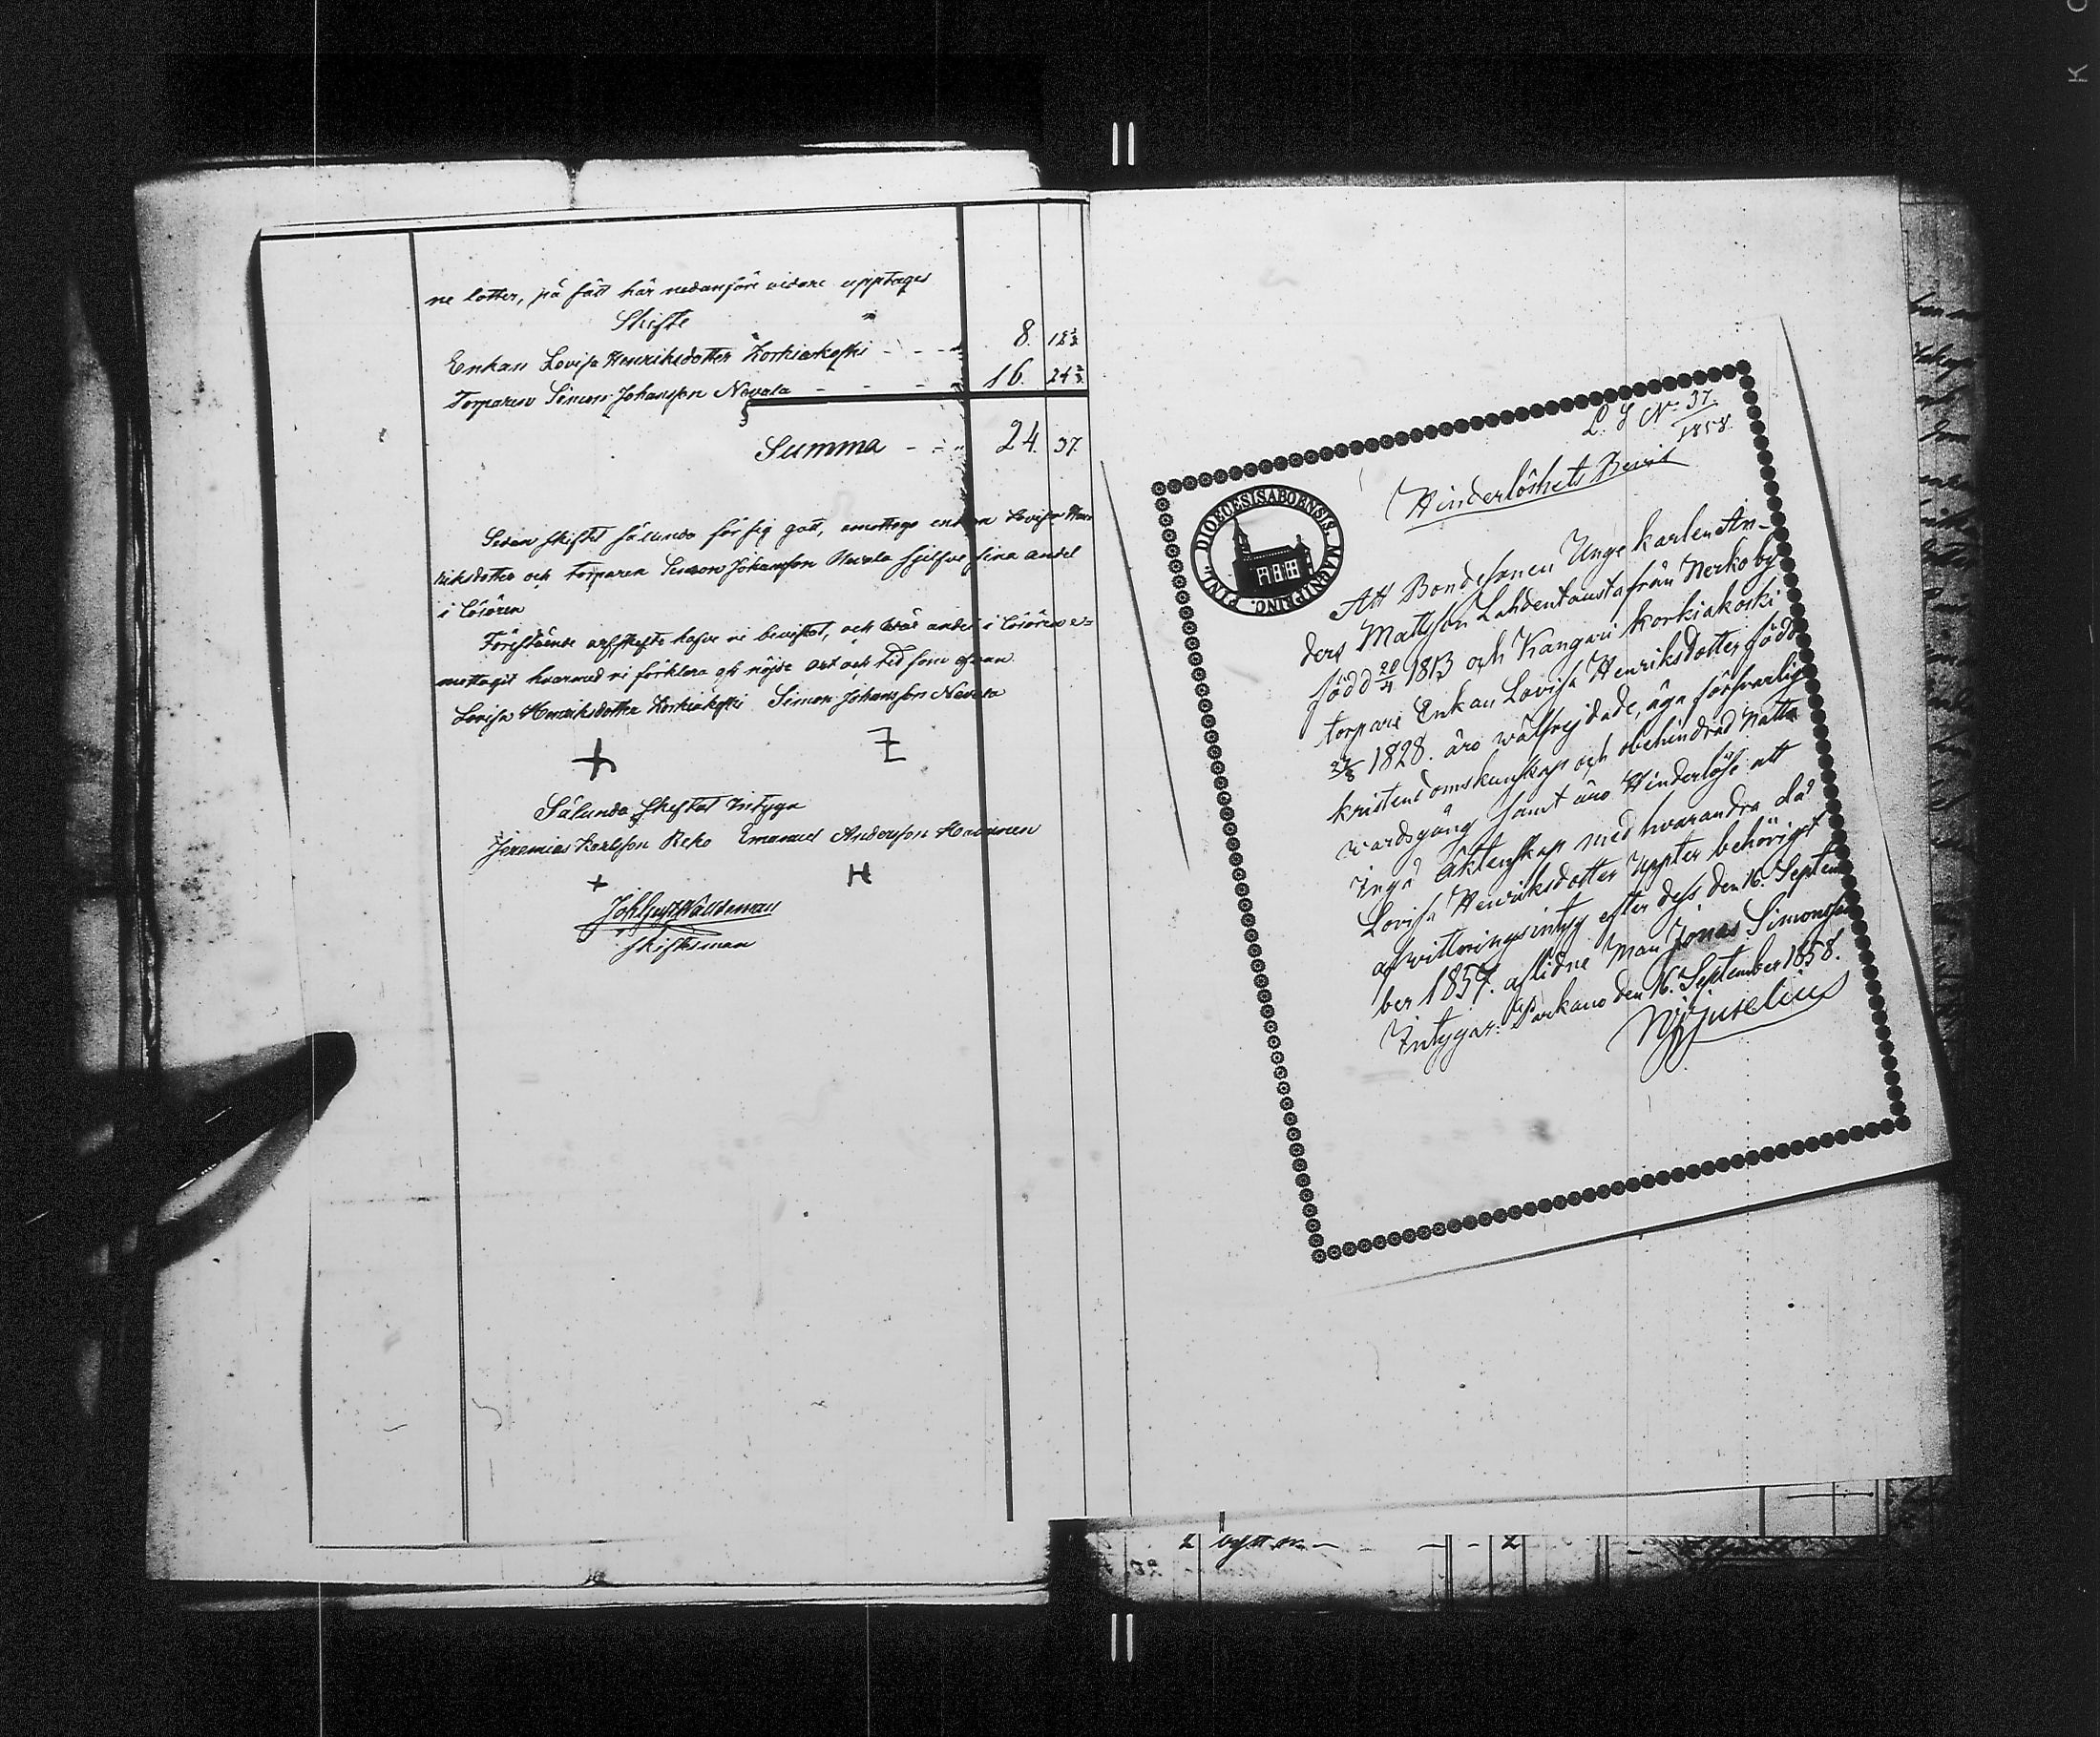 ne lotter, på sätt här nedanföre vidare upptages
Skifte
Enkan Lovisa Henriksdotter Korkiakoski - - - 8. 12 1/3
Torparen Simon Johansson Nevala - - - - 16. 24 2/3
Summa - - - 24. 37.
Sedan skiftet sålunda för sig gått, emottogo enkan Lovisa Hen
riksdotter och torparen Simon Johansson Nevala sjelfve sina andel
i lösören
Förestående arfskifte hafve vi bevistat, och vår andel i lösören e=
mottagit hvarmed vi förklara oss nöjde ort och tid som ofvan
Lovisa Henriksdotter Korkiakoski Simon Johansson Nevala
Sålunda skiftat intyga
Jeremias Karlsson Reko Emanuel Andersson
Joh Gust Walldeman
skiftsman
L. S. No 37.
1858.
Hinderlöshets Bevis
DIOECESIS ABOENSIS. MAGNI PRINC. FINL.
Att Bondesonen Ungekarlen An-
ders Mattsson Lahdentausta från Nerkoby
född 20/4 1813 och Kangari Korkiakoski
torpare Enkan Lovisa Henriksdotter född
27/3 1828. äro wälfrejdade, äga försvarlig
kristendomskunskap och obehindrad Natt
wardsgång samt äro Hinderlöse att
Ingå Äktenskap med hvarandra då
Lovisa Henriksdotter Uppter behörigt
afwittringsintyg efter dess den 16. Septem
ber 1857. aflidne Man Jonas Simonsson
Intygar: Parkano den 16. September 1858.
Juselius
2
2